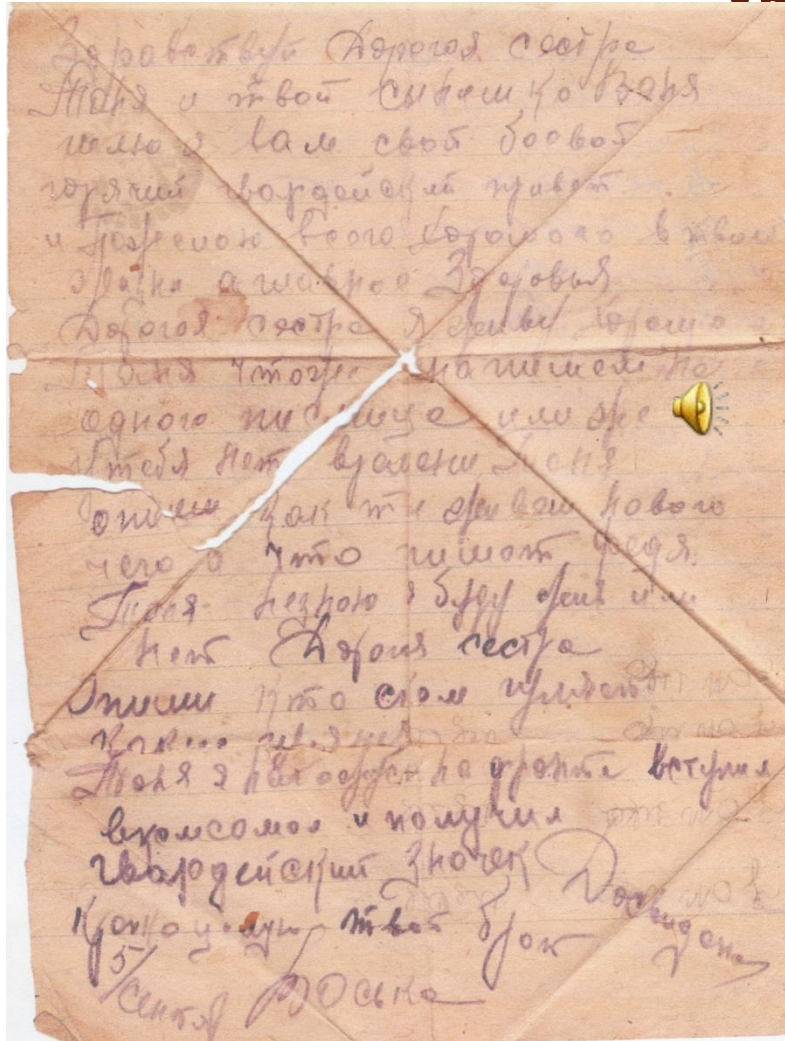 Здравствуй Дорогая сестра
Таня и твой сынишко Ваня
шлю я вам свой боевой
горячий гвардейский привет
и Пожелаю всего хорошого в твоей
а главное Здоровья
Дорогая сестра я живу хорошо
Таня чтоже напишем не
одного писмица или же
Утебя нет времени Таня
опиши как ты живеш нового
чего и что пишот Федя
Таня незнаю я буду жив или
нет Дорогая сестра
Опиши кто ском гуляет

Таня я нахожусь на фронте вступил
вкомсомол и получил
гвардейский значек
Крепко целую твой брат
5/сентяб Васька